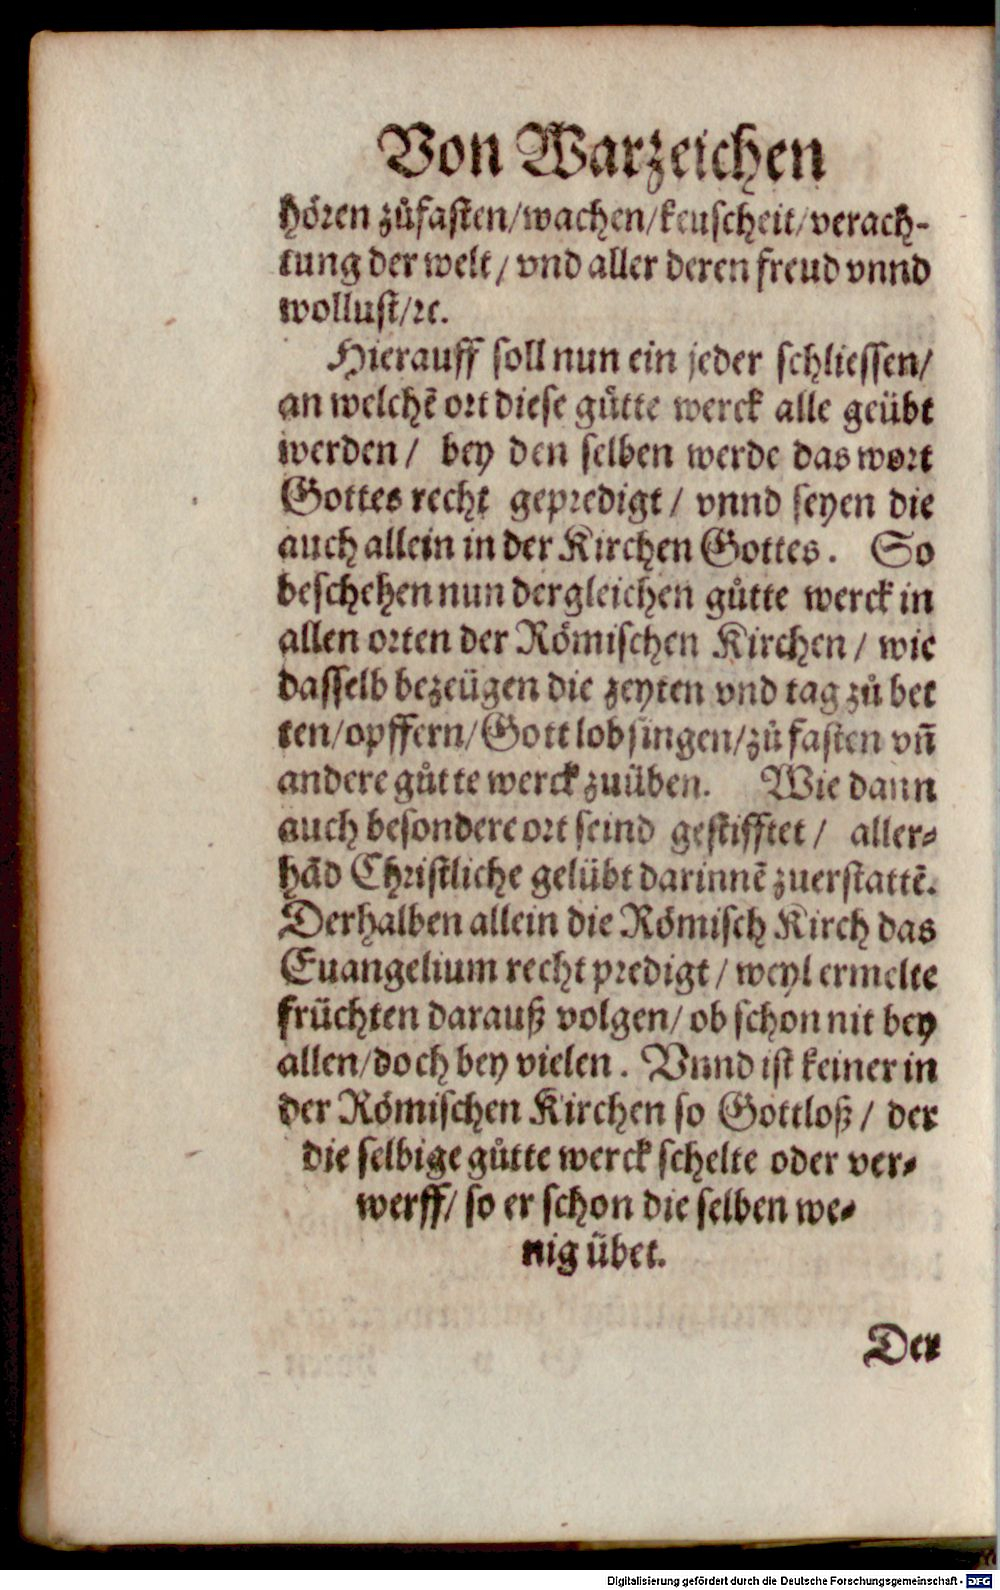 Von Warzeichen
hören zůfasten/wachen/keuscheit/verach-
tung der welt/ vnd aller deren freud vnnd
wollust/ꝛc.
Hierauff soll nun ein jeder schliessen/
an welchẽ ort diese gůtte werck alle geübt
werden/ bey den selben werde das wort
Gottes recht gepredigt/ vnnd seyen die
auch allein in der Kirchen Gottes. So
beschehen nun dergleichen gůtte werck in
allen orten der Römischen Kirchen/ wie
dasselb bezeügen die zeyten vnd tag zů bet
ten/opffern/Gott lobsingen/zů fasten vñ
andere gůtte werck zuüben. Wie dann
auch besondere ort seind gestifftet/ aller-
hãd Christliche gelübt darinnẽ zuerstattẽ.
Derhalben allein die Römisch Kirch das
Euangelium recht predigt/ weyl ermelte
früchten darauß volgen/ ob schon nit bey
allen/doch bey vielen. Vnnd ist keiner in
der Römischen Kirchen so Gottloß/ der
die selbige gůtte werck schelte oder ver-
werff/ so er schon die selben we-
nig übet.
Der
Digitalisierung gefördert durch die Deutsche Forschungsgemeinschaft - DFG